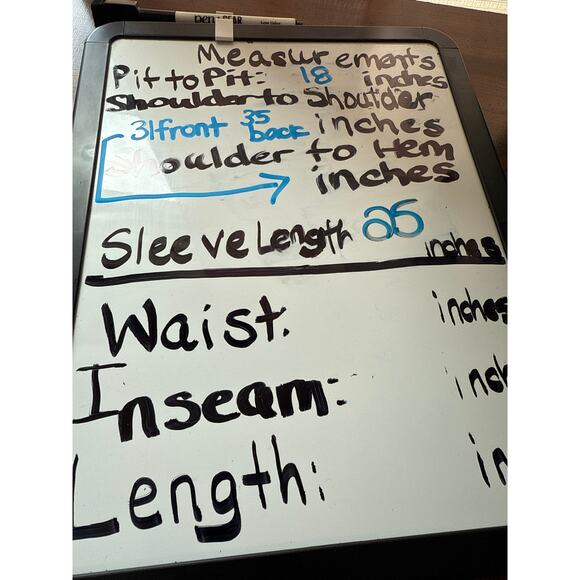 Pen+GEAR
Measurements
Pit to Pit: 18 inches
Shoulder to Shoulder
31front 35 back inches
Shoulder to Hem
inches
Sleeve Length 25 inches
Waist: inches
Inseam: inch
Length: in